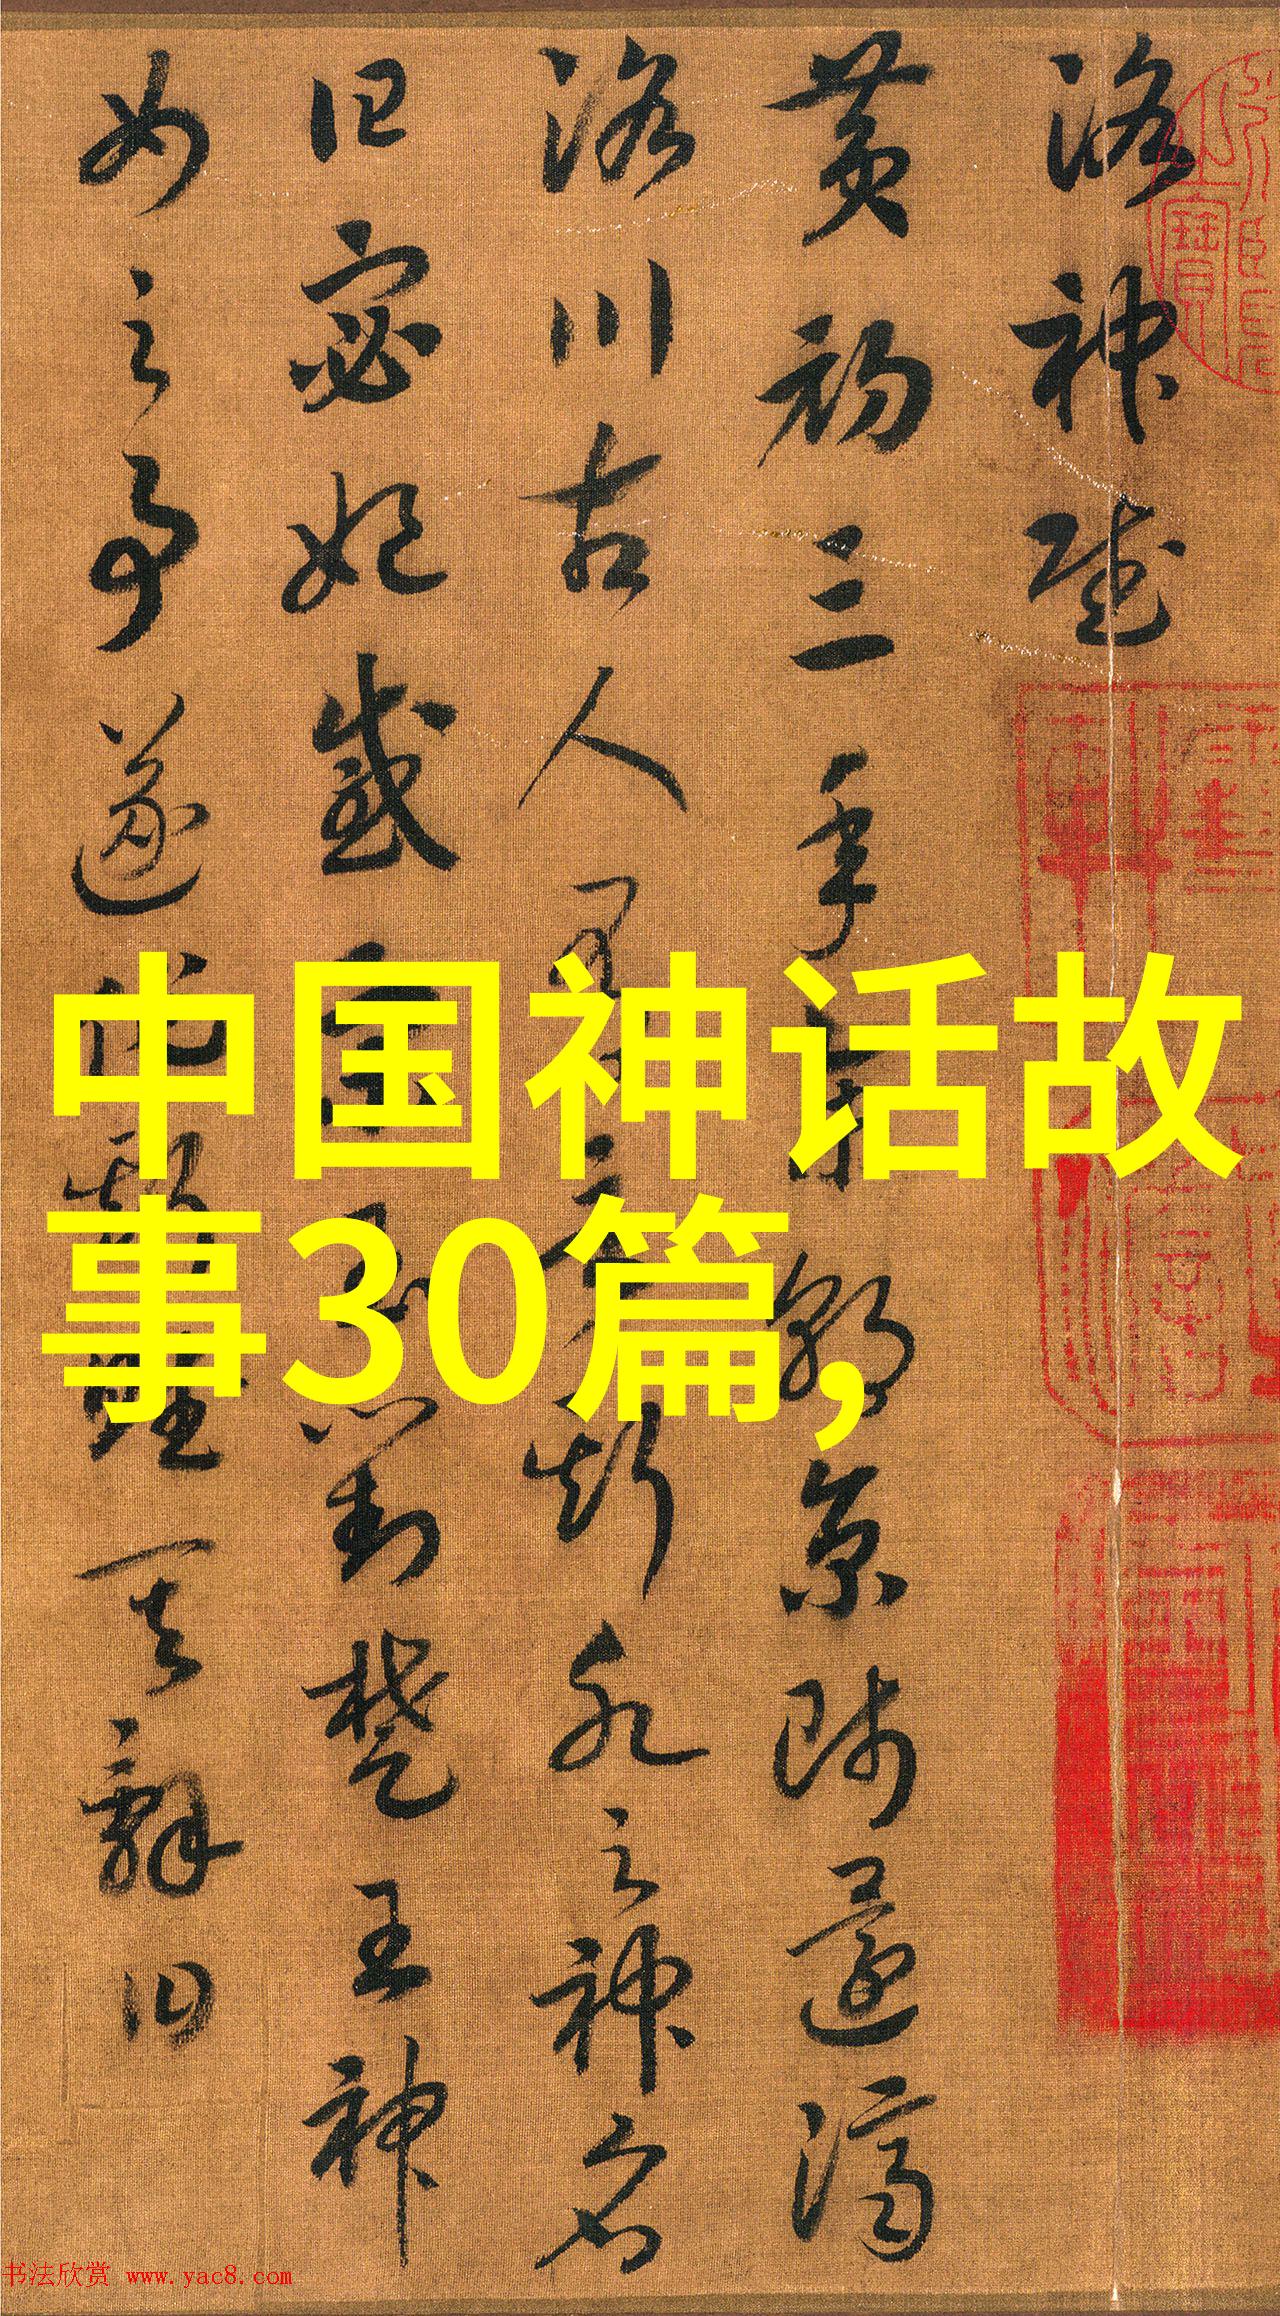 洛神賦
黄初三年余朝京師還濟
洛川古人有言斯水之神名
曰宓妃感宋玉對楚王神
女之事遂作斯賦其辭曰
中国神话故
事30篇,
书法欣赏 www.yac8.com